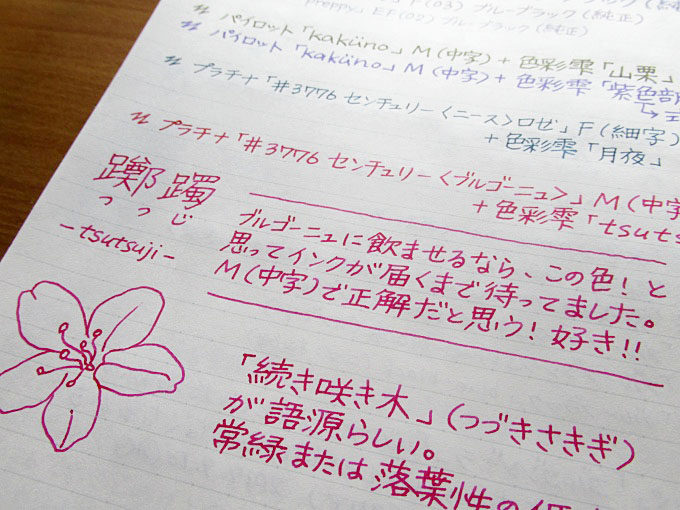 F(03) ブルーブラック(純正)
preppy」EF(02) ブルーブラック(純正)
〃 パイロット「kaküno」M(中字)+色彩雫「山栗」
〃 パイロット「kaküno」M(中字)+色彩雫「紫式部
〃 プラチナ「#3776 センチュリー〈ニース〉ロゼ」F(細字)
+色彩雫「月夜」
〃 プラチナ「#3776 センチュリー〈ブルゴーニュ〉」M(中字
+色彩雫「tsuts
躑躅
つつじ
-tsutsuji-
ブルゴーニュに飲ませるなら、この色!と
思ってインクが届くまで待ってました。
M(中字)で正解だと思う!好き!!
「続き咲き木」(つづきさきぎ)
が語源らしい。
常緑または落葉性の低